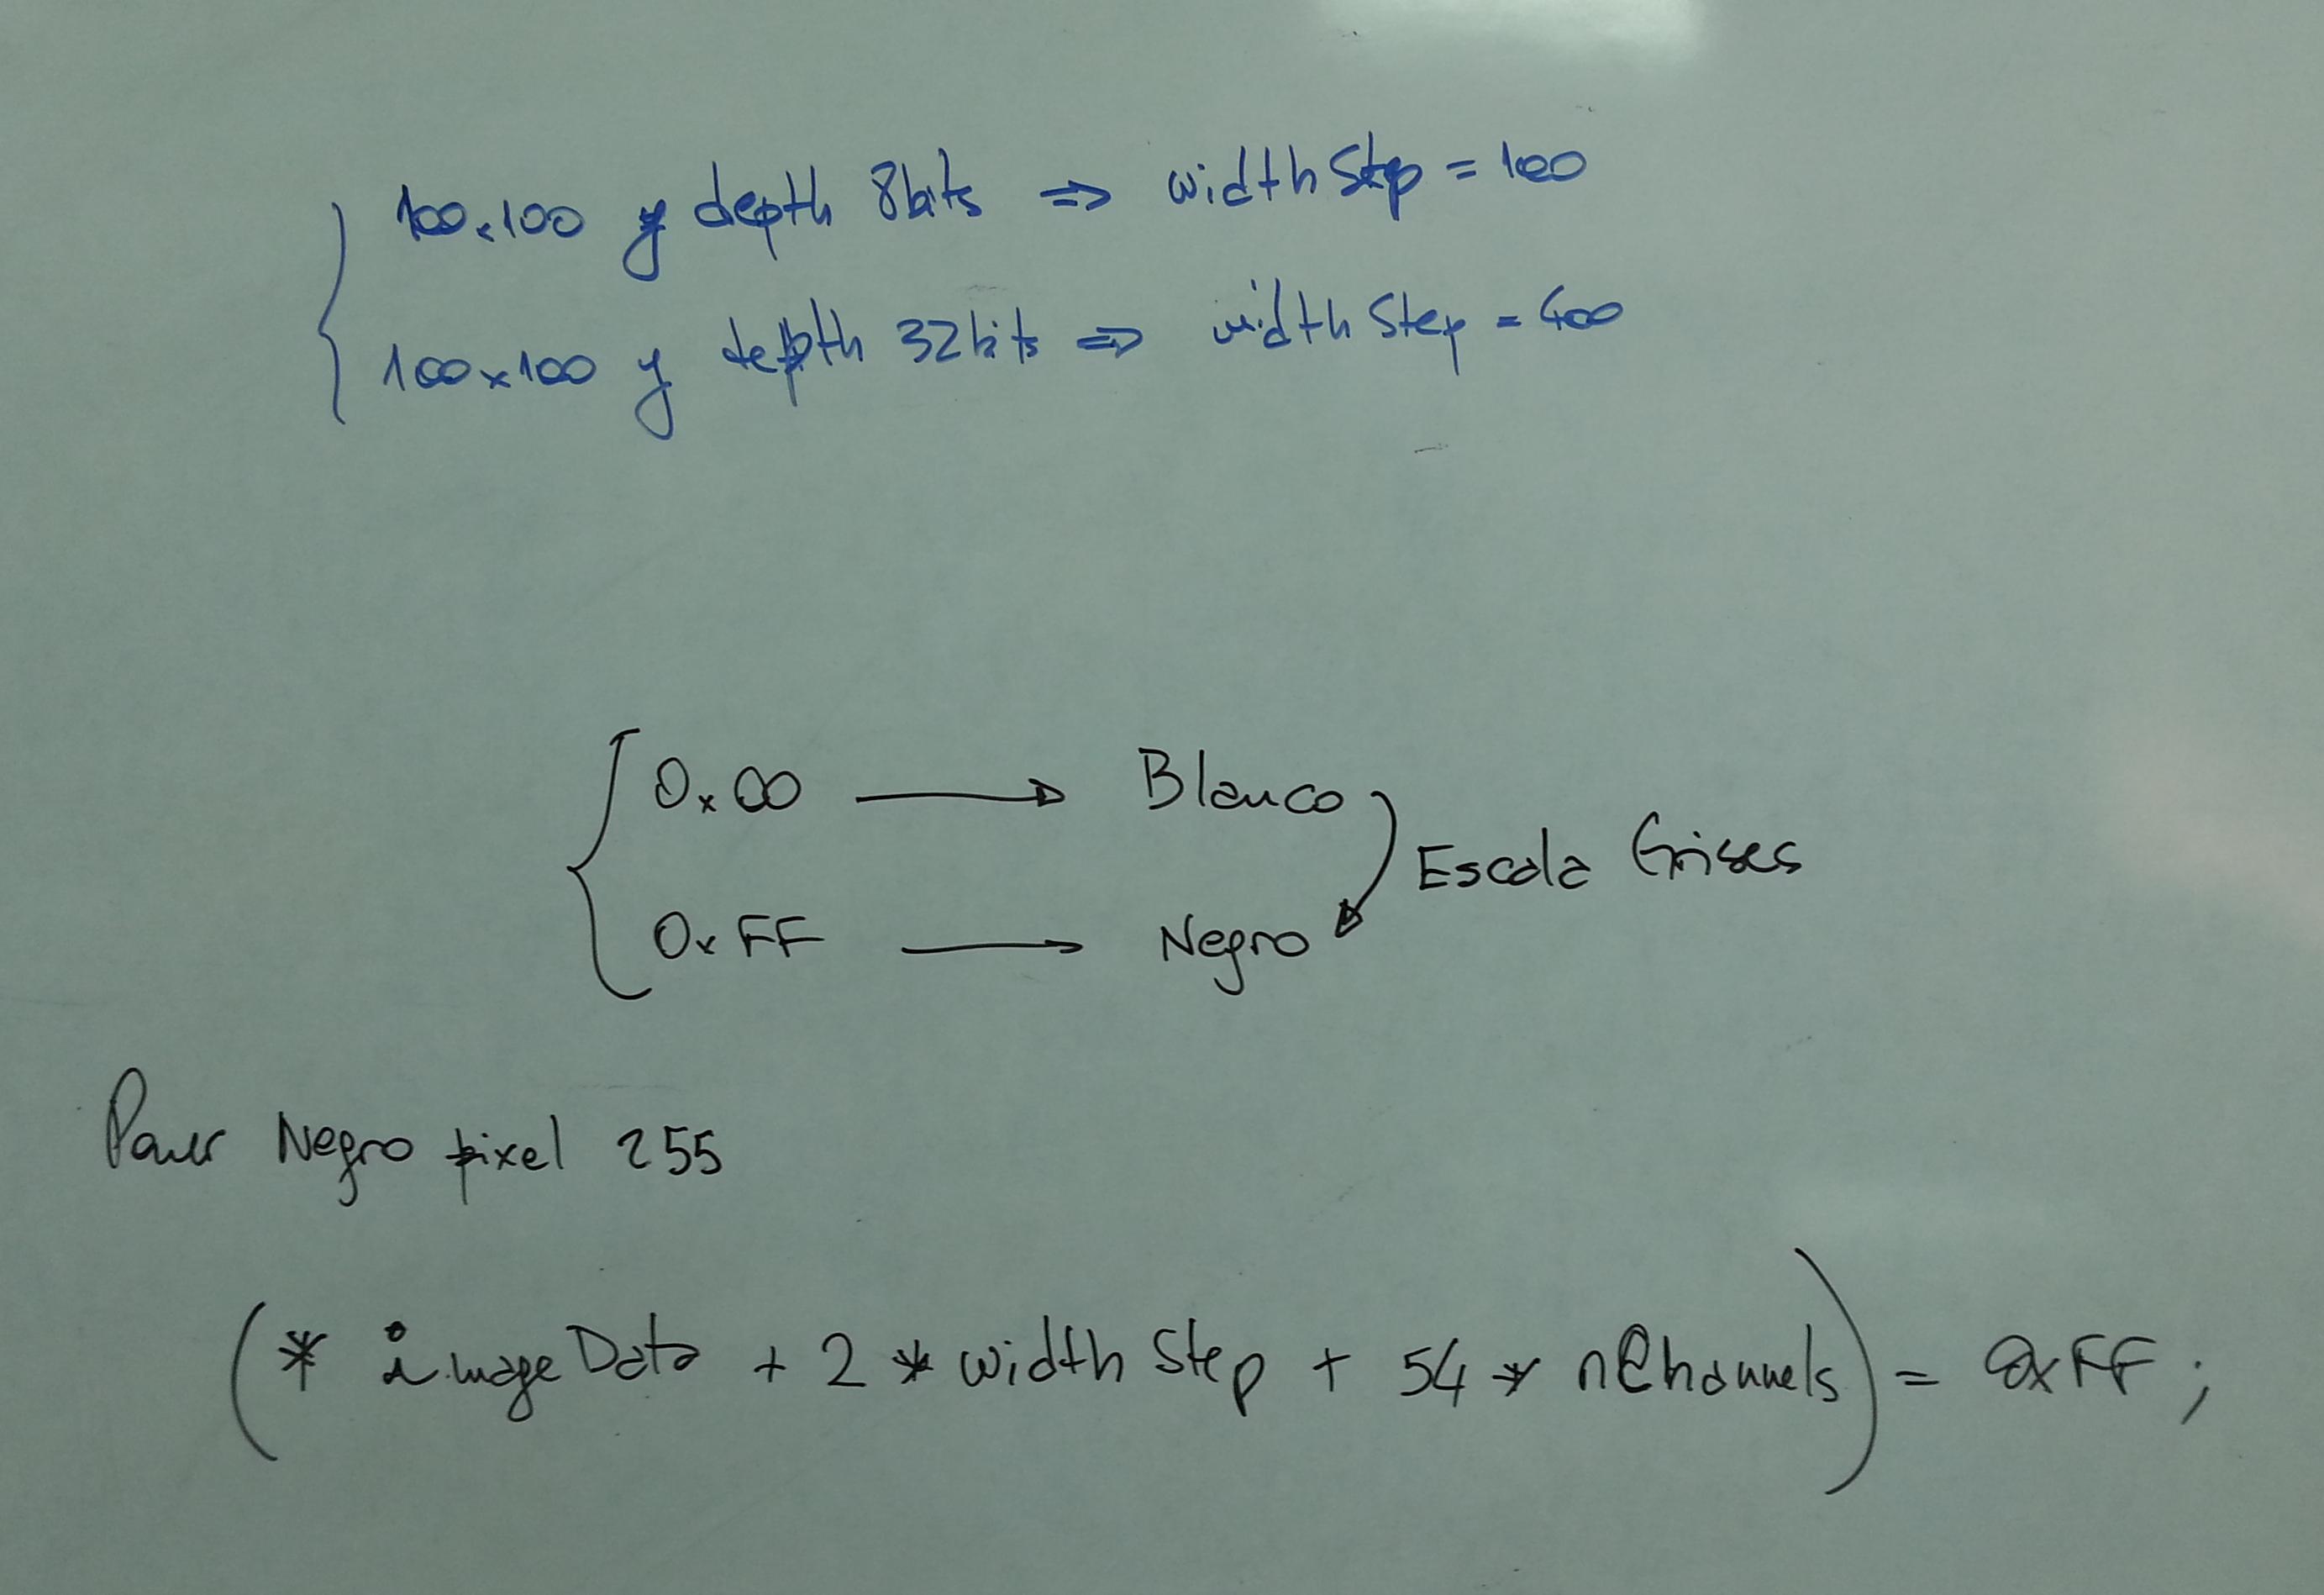 100x100 y depth 8bits => widthStep = 100
100x100 y depth 32bits => widthStep = 400
0x00 → Blanco
Escala Grises
0xFF → Negro
Poner Negro pixel 255
(* imageData + 2 * widthStep + 54 * nChannels) = 0xFF;